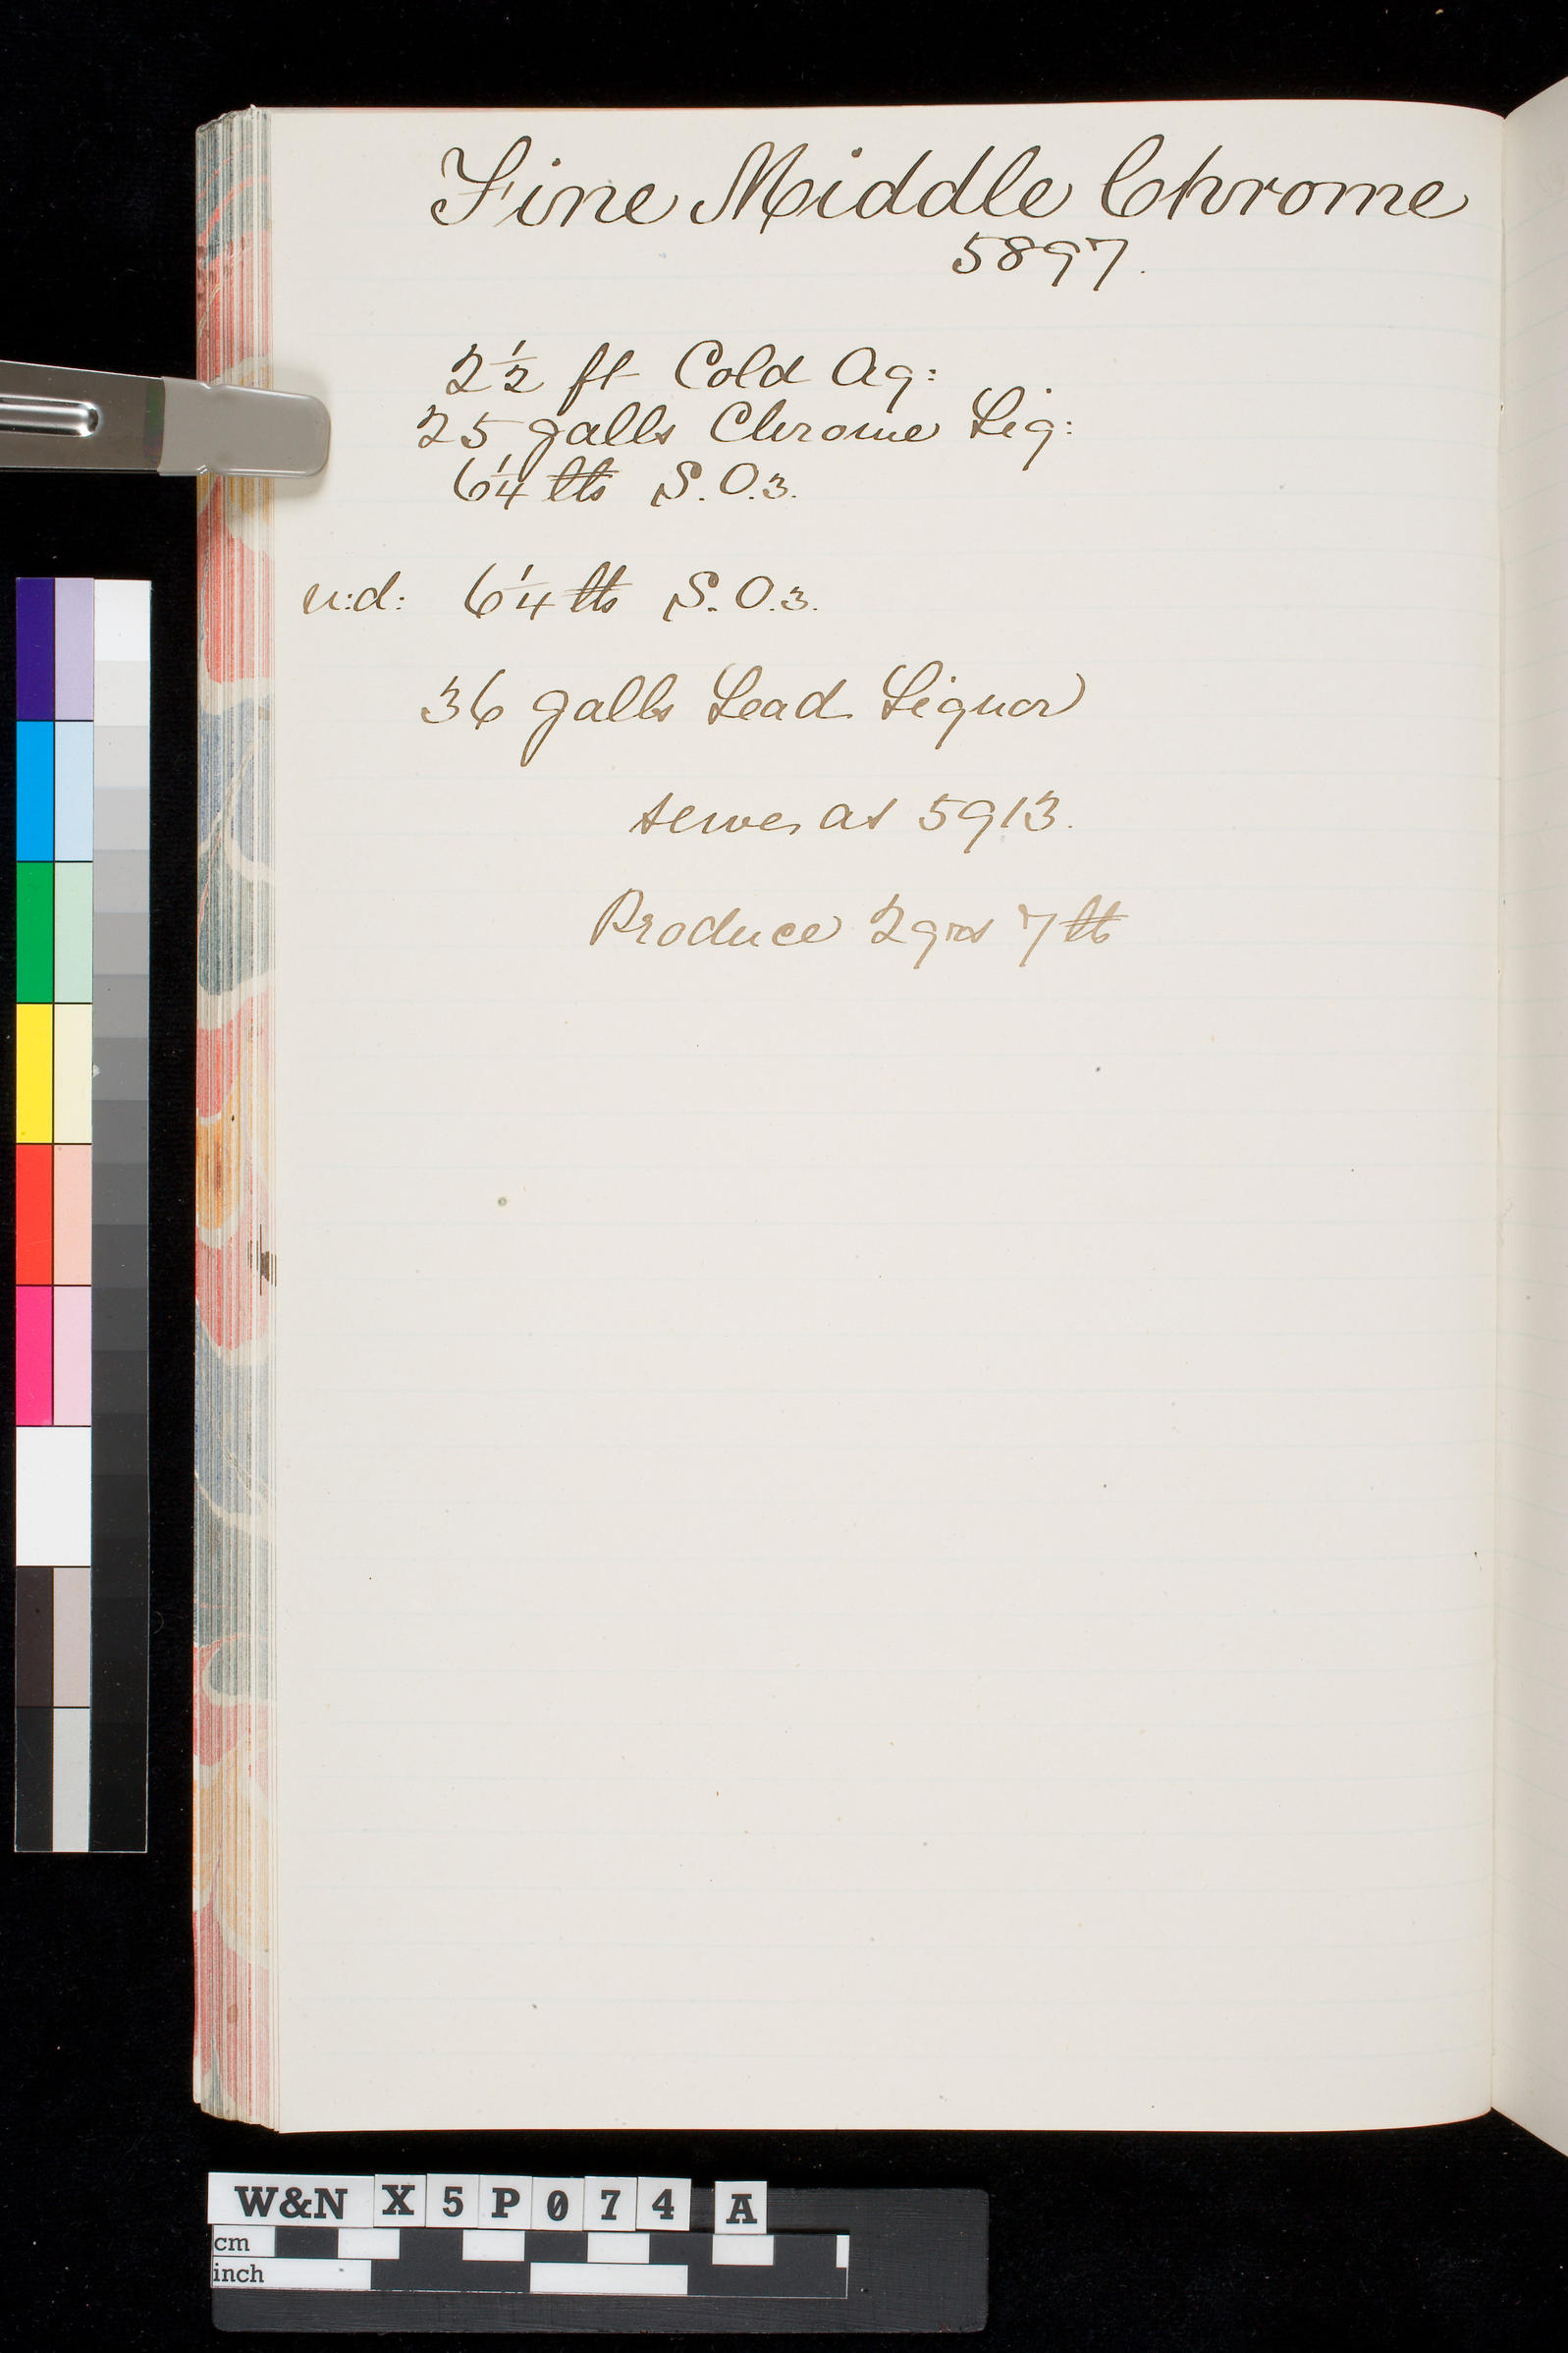 Fine Middle Chrome
5897.
2½ ft Cold Aq:
25 galls Chrome Liq:
6¼ lbs S.O.3.
n:d: 6¼ lbs S.O.3.
36 galls Lead Liquor
serves as 5913.
Produce 2 qrs 7 lb
W&N X5P074 A
cm
inch